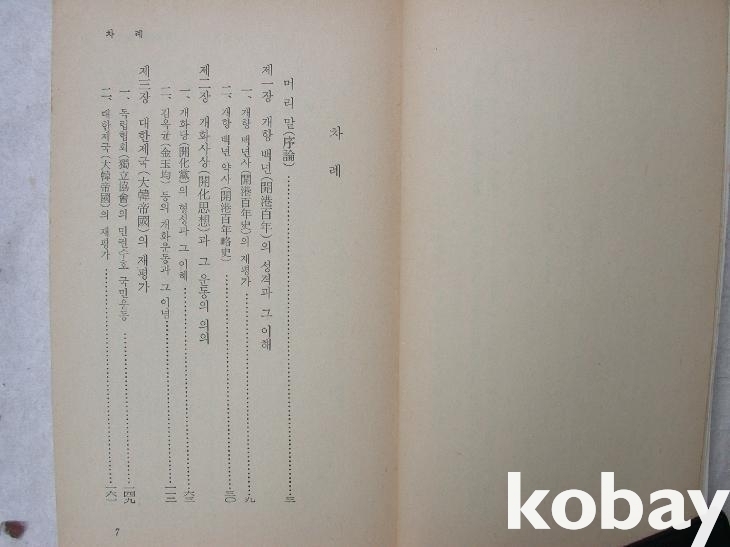 차례
차례
머리말(序論)……三
제一장 개항 백년(開港百年)의 성격과 그 이해
一、개항 백년사(開港百年史)의 재평가……九
二、개항 백년 약사(開港百年略史)……三〇
제二장 개화사상(開化思想)과 그 운동의 의의
一、개화당(開化黨)의 형성과 그 이해……六三
二、김옥균(金玉均) 등의 개화운동과 그 이념……一一三
제三장 대한제국(大韓帝國)의 재평가
一、독립협회(獨立協會)의 민권수호 국민운동……一四九
二、대한제국(大韓帝國)의 재평가……一六一
7
kobay